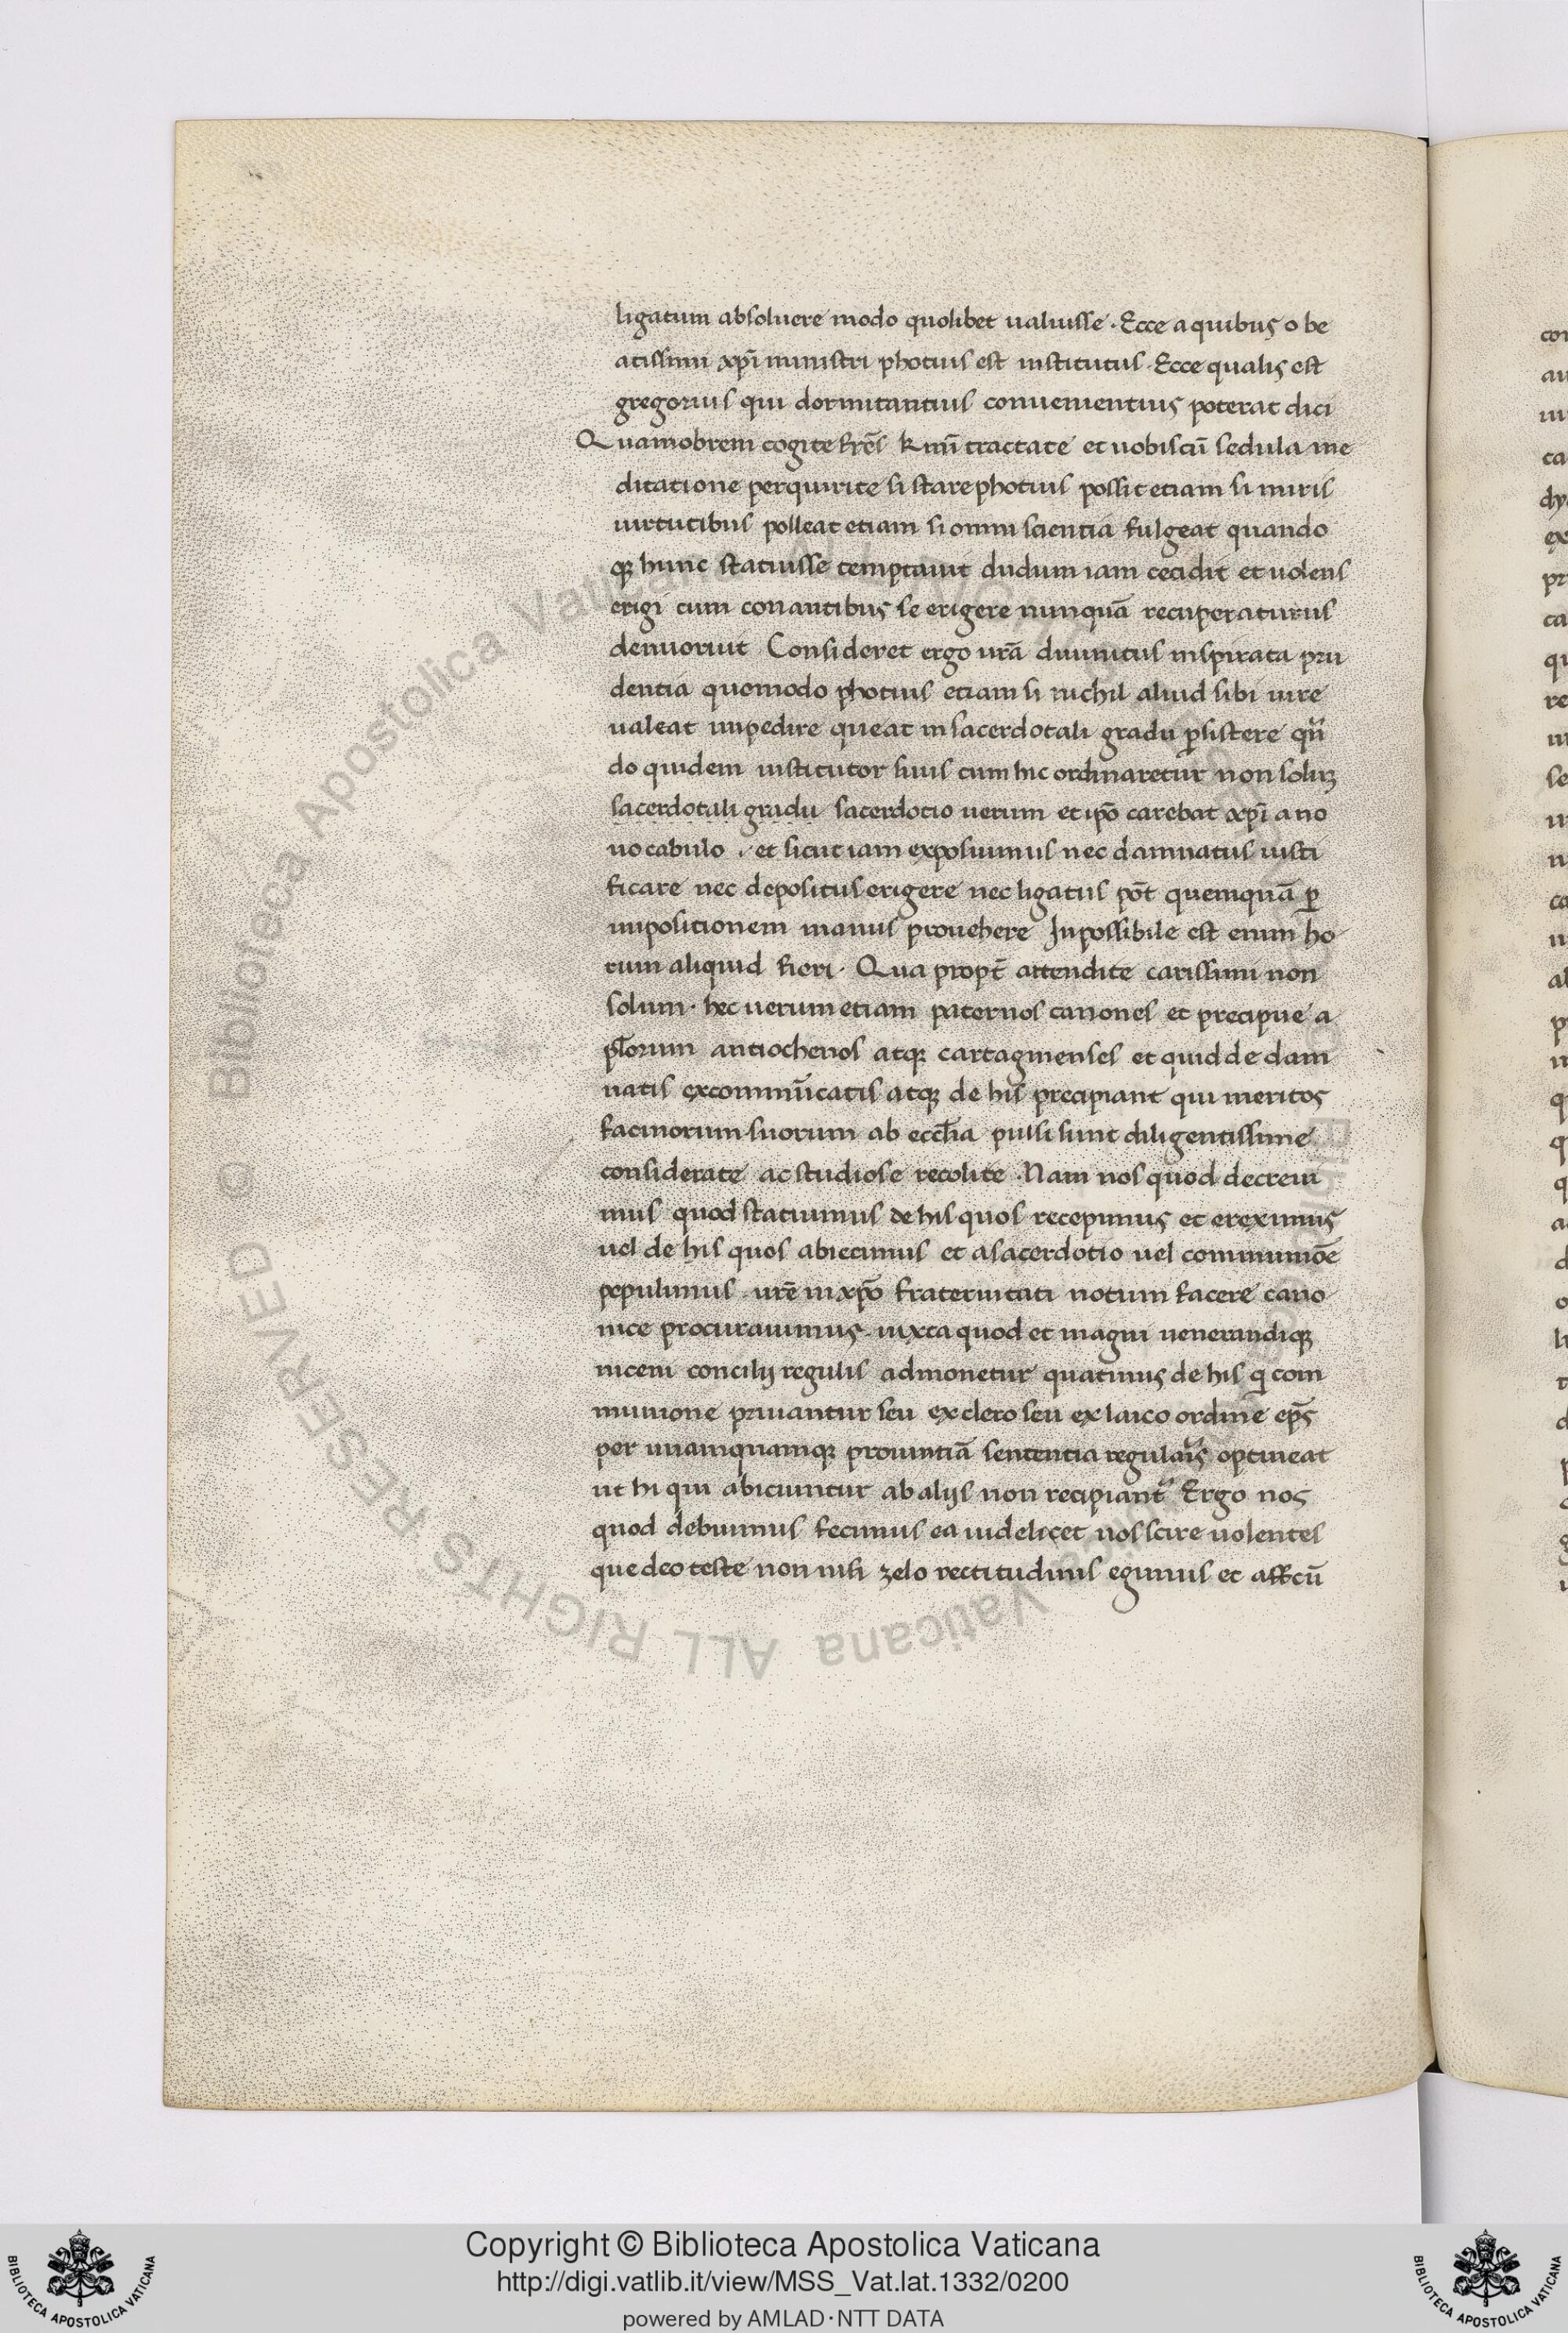 ligatum absoluere modo quolibet ualuisse · Ecce a quibus o be
atissimi xp̄i ministri photius est institutus · Ecce qualis est
gregorius qui dormitantius conuenientius poterat dici
Quamobrem cogite fr̄es k̄mi tractate et uobiscū sedula me
ditatione perquirite si stare photius possit etiam si miris
uirtutibus polleat etiam si omni scientia fulgeat quando
qꝫ hunc statuisse temptauit dudum iam cecidit et uolens
erigi cum conantibus se erigere nunquā recuperaturus
denuo riut Consideret ergo ur̄a diuinitus inspirata pru
dentia quomodo photius etiam si nichil aliud sibi iure
ualeat impedire queat in sacerdotali gradu ꝑsistere qn̄
do quidem institutor suus cum hic ordinaretur non soluꝫ
sacerdotali gradu sacerdotio uerum et ip̄o carebat xp̄iano
uocabulo · et sicut iam exposuimus nec damnatus iusti
ficare nec depositus erigere nec ligatus pōt quemquā ꝑ
impositionem manus prouehere Inpossibile est enim ho
rum aliquid fieri · Qua propt̄ attendite carissimi non
solum · hec uerum etiam paternos canones et precipue a
pl̄orum antiochenos atqꝫ cartaginenses et quid de dam
natis excommūicatis atqꝫ de his precipiant qui meritos
facinorum suorum ab eccl̄ia pulsi sunt diligentissime
considerate ac studiose recolite · Nam nos quod decreui
mus quod statuimus de his quos recepimus et ereximus
uel de his quos abiecimus et a sacerdotio uel communiōe
pepulimus ur̄e in xp̄o fraternitati notum facere cano
nice procurauimus iuxta quod et magni uenerandiqꝫ
niceni concilij regulis admonetur quatinus de his q̄ com
munione priuantur seu ex clero seu ex laico ordine ep̄s
per unamquamqꝫ prouintiā sententia regulais optineat
ut hi qui abiciuntur ab alijs non recipiant᷑ Ergo nos
quod debuimus fecimus ea uidelicet uos scire uolentes
que deo teste non nisi zelo rectitudinis egimus et affcū
Copyright © Biblioteca Apostolica Vaticana
http://digi.vatlib.it/view/MSS_Vat.lat.1332/0200
powered by AMLAD·NTT DATA
BIBLIOTECA APOSTOLICA VATICANA
BIBLIOTECA APOSTOLICA VATICANA
© Biblioteca Apostolica Vaticana ALL RIGHTS RESERVED